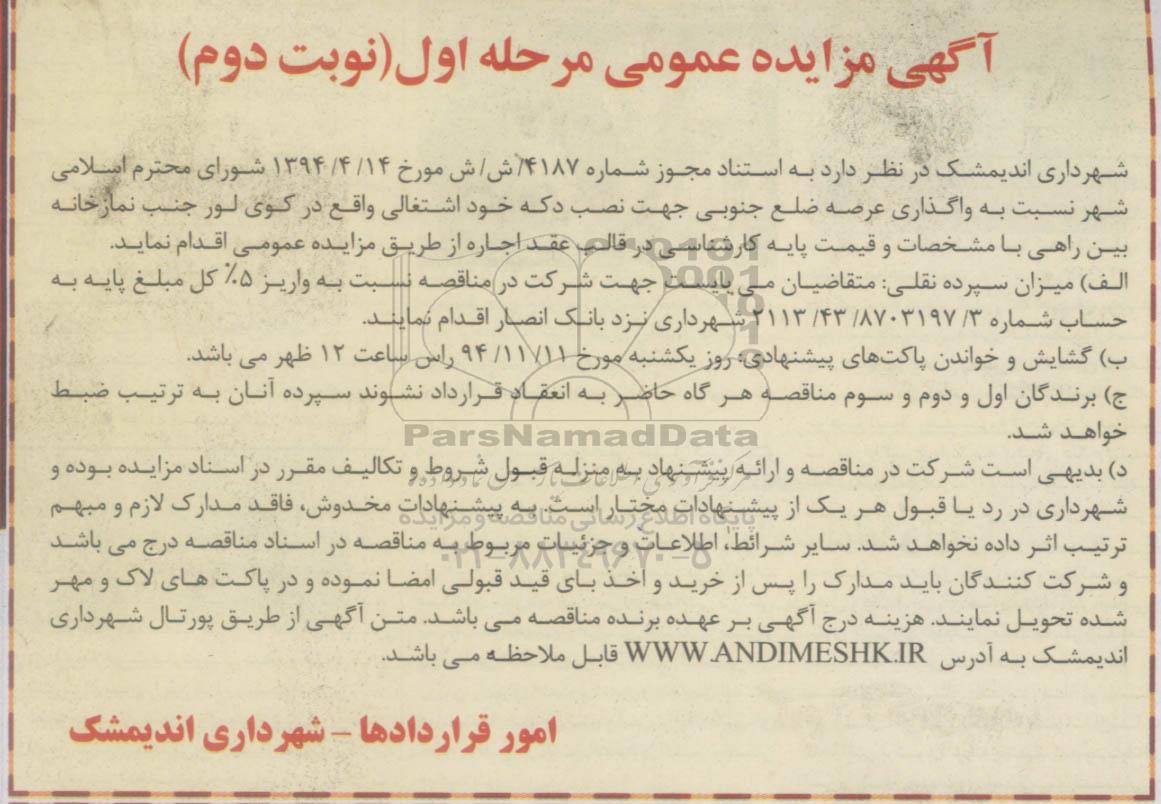 آگهی مزایده عمومی مرحله اول(نوبت دوم)
شهرداری اندیمشک در نظر دارد به استناد مجوز شماره ۴۱۸۷/ ش/ ش مورخ ۱۴/ ۴/ ۱۳۹۴ شورای محترم اسلامی
شهر نسبت به واگذاری عرصه ضلع جنوبی جهت نصب دکه خود اشتغالی واقع در کوی لور جنب نمازخانه
بین راهی با مشخصات و قیمت پایه کارشناسی در قالب عقد اجاره از طریق مزایده عمومی اقدام نماید.
الف) میزان سپرده نقلی: متقاضیان می بایست جهت شرکت در مناقصه نسبت به واریز ۵٪ کل مبلغ پایه به
حساب شماره ۳/ ۸۷۰۳۱۹۷/ ۴۳/ ۲۱۱۳ شهرداری نزد بانک انصار اقدام نمایند.
ب) گشایش و خواندن پاکت‌های پیشنهادی: روز یکشنبه مورخ ۱۱/۱۱/ ۹۴ راس ساعت ۱۲ ظهر می باشد.
ج) برندگان اول و دوم و سوم مناقصه هر گاه حاضر به انعقاد قرارداد نشوند سپرده آنان به ترتیب ضبط
خواهد شد.
ParsNamadData
د) بدیهی است شرکت در مناقصه و ارائه پیشنهاد به منزله قبول شروط و تکالیف مقرر در اسناد مزایده بوده و
شهرداری در رد یا قبول هر یک از پیشنهادات مختار است. به پیشنهادات مخدوش، فاقد مدارک لازم و مبهم
پایگاه اطلاع رسانی مناقصه و مزایده
ترتیب اثر داده نخواهد شد. سایر شرائط، اطلاعات و جزئیات مربوط به مناقصه در اسناد مناقصه درج می باشد
۰۲۱-۸۸۳۴۹۶۷۰-۵
و شرکت کنندگان باید مدارک را پس از خرید و اخذ بای قید قبولی امضا نموده و در پاکت های لاک و مهر
شده تحویل نمایند. هزینه درج آگهی بر عهده برنده مناقصه می باشد. متن آگهی از طریق پورتال شهرداری
اندیمشک به آدرس WWW.ANDIMESHK.IR قابل ملاحظه می باشد.
امور قراردادها - شهرداری اندیمشک